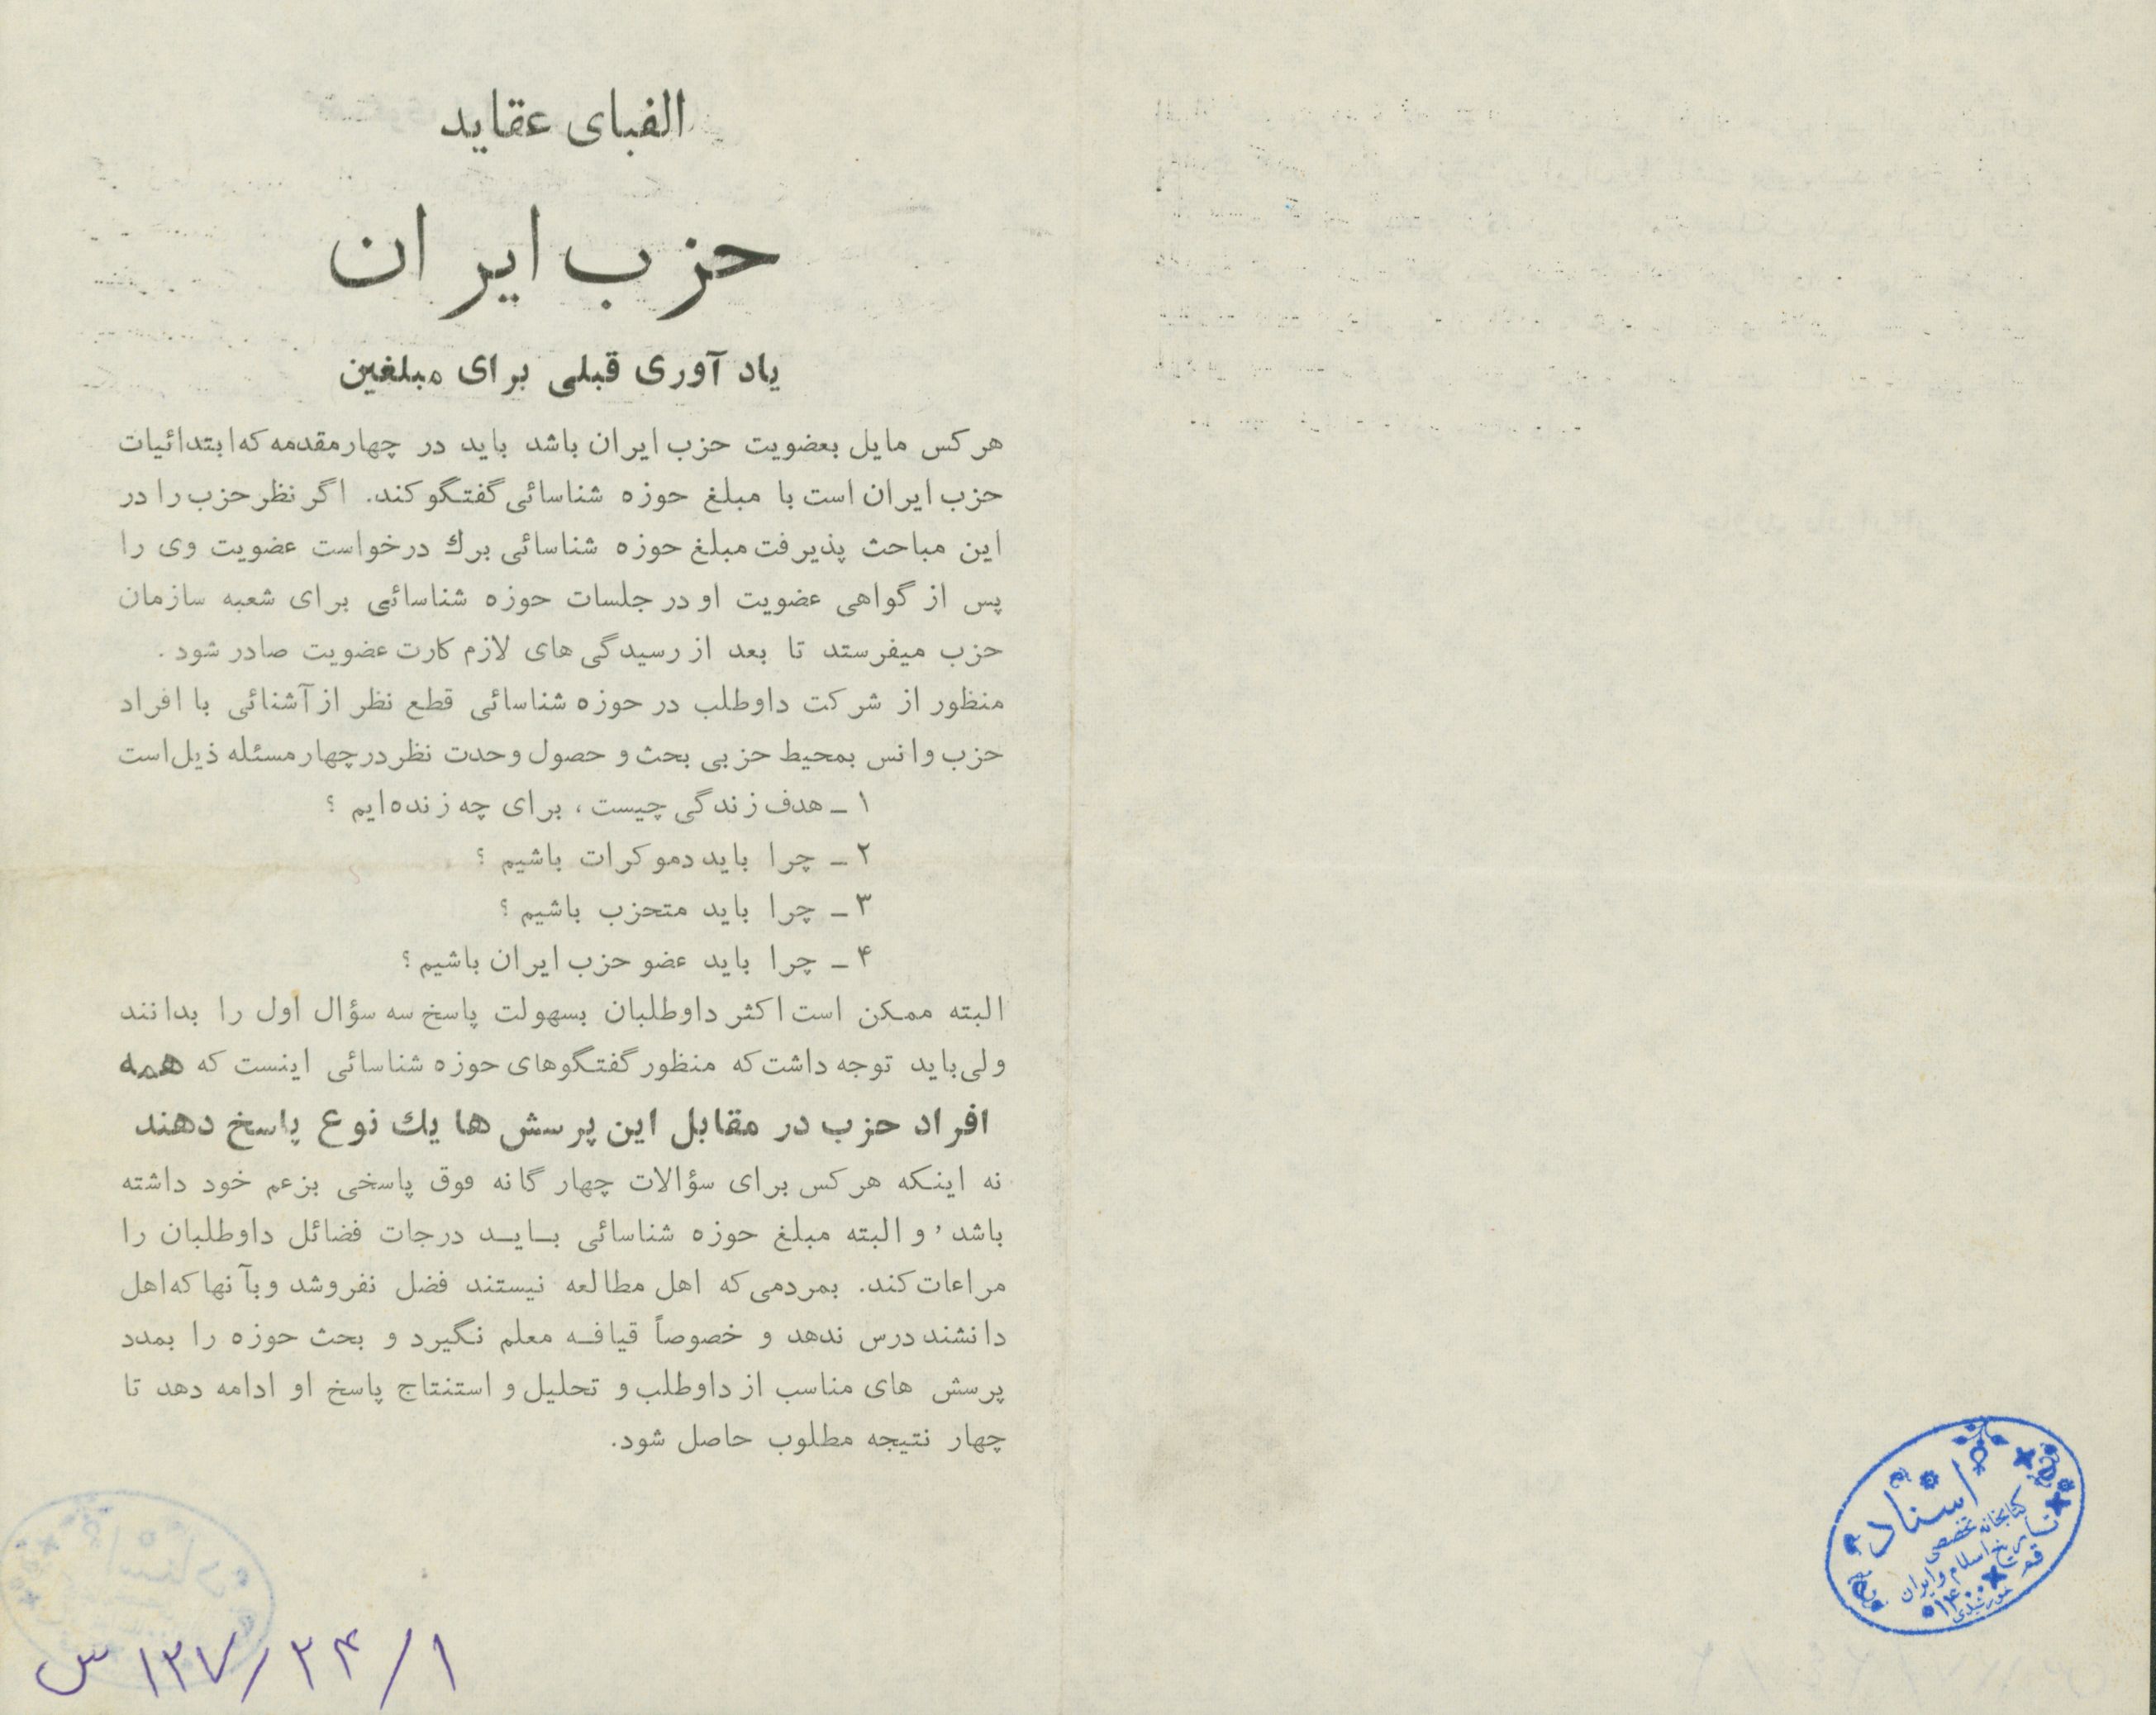 الفبای عقاید
حزب ایران
یاد آوری قبلی برای مبلغین
هر کس مایل بعضویت حزب ایران باشد باید در چهار مقدمه که ابتدائیات
حزب ایران است با مبلغ حوزه شناسائی گفتگو کند. اگر نظر حزب را در
این مباحث پذیرفت مبلغ حوزه شناسائی برك درخواست عضویت وی را
پس از گواهی عضویت او در جلسات حوزه شناسائی برای شعبه سازمان
حزب میفرستد تا بعد از رسیدگی های لازم کارت عضویت صادر شود .
منظور از شرکت داوطلب در حوزه شناسائی قطع نظر از آشنائی با افراد
حزب و انس بمحیط حزبی بحث و حصول وحدت نظر در چهار مسئله ذیل است
۱ ـ هدف زندگی چیست ، برای چه زنده‌ایم ؟
۲ ـ چرا باید دموکرات باشیم ؟
۳ ـ چرا باید متحزب باشیم ؟
۴ ـ چرا باید عضو حزب ایران باشیم ؟
البته ممکن است اکثر داوطلبان بسهولت پاسخ سه سؤال اول را بدانند
ولی باید توجه داشت که منظور گفتگوهای حوزه شناسائی اینست که همه
افراد حزب در مقابل این پرسش ها یك نوع پاسخ دهند
نه اینکه هر کس برای سؤالات چهار گانه فوق پاسخی بزعم خود داشته
باشد ' و البته مبلغ حوزه شناسائی بـایـد درجات فضائل داوطلبان را
مراعات کند. بمردمی که اهل مطالعه نیستند فضل نفروشد و بآنها که اهل
دانشند درس ندهد و خصوصاً قیافـه معلم نگیرد و بحث حوزه را بمدد
پرسش های مناسب از داوطلب و تحلیل و استنتاج پاسخ او ادامه دهد تا
چهار نتیجه مطلوب حاصل شود.
۱۳۷/۲۴/۱ س
اسناد
کتابخانه تخصصی
تاریخ اسلام و ایران
قم
۱۴۰۰
خورشیدی